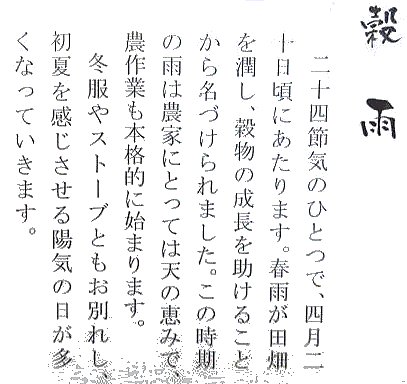 穀雨
二十四節気のひとつで、四月二
十日頃にあたります。春雨が田畑
を潤し、穀物の成長を助けること
から名づけられました。この時期
の雨は農家にとっては天の恵みで
農作業も本格的に始まります。
冬服やストーブともお別れし
初夏を感じさせる陽気の日が多
くなっていきます。